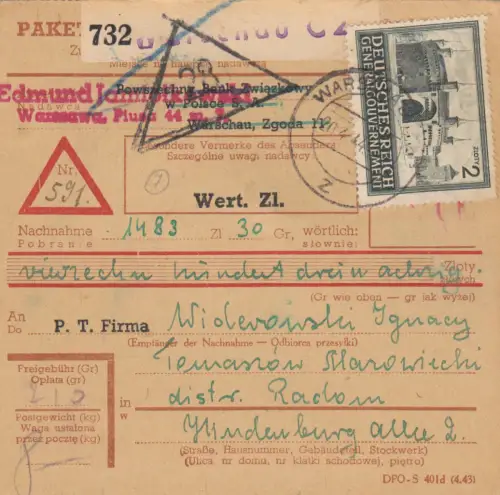 PAKET
732
Warschau C 2
Edmund
Nadawca
Warszawa, Piusa 44 m.
Powszechny Bank Związkowy
w Polsce S. A.
Warschau, Zgoda 11
WARS
Z
DEUTSCHES REICH
GENERALGOUVERNEMENT
2 ZŁOTY
Besondere Vermerke des Absenders
Szczególne uwagi nadawcy
Nr.
591.
1
Wert. Zl.
Nachnahme 1483 Zl 30 Gr, wörtlich:
Pobranie słownie:
vierzehn hundert drein achzig Złoty
(Gr wie oben — gr jak wyżej)
An
Do P. T. Firma Widerowski Ignacy
(Empfänger der Nachnahme — Odbiorca przesyłki)
Freigebühr (Gr)
Opłata (gr)
Tomaszów Mazowiecki
distr. Radom
Postgewicht (kg)
Waga ustalona
przez pocztę (kg)
in
w Hindenburg allee 2.
(Straße, Hausnummer, Gebäudeteil, Stockwerk)
(Ulica nr domu, nr klatki schodowej, piętro)
DPO-S 401d (4.43)